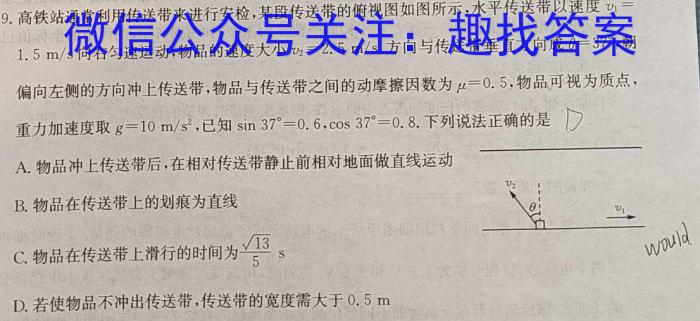 9. 高铁站通常利用传送带来进行安检,某段传送带的俯视图如图所示,水平传送带以速度 v₁=
微信公众号关注：趣找答案
1.5 m/s 向右匀速运动,物品的速度大小 v₂=2.5 m/s
偏向左侧的方向冲上传送带,物品与传送带之间的动摩擦因数为 μ=0.5,物品可视为质点,
重力加速度取 g=10 m/s²,已知 sin 37°=0.6,cos 37°=0.8.下列说法正确的是 D
A. 物品冲上传送带后,在相对传送带静止前相对地面做直线运动
B. 物品在传送带上的划痕为直线
C. 物品在传送带上滑行的时间为 √13/5 s
D. 若使物品不冲出传送带,传送带的宽度需大于 0.5 m
v₂
θ
v₁
would